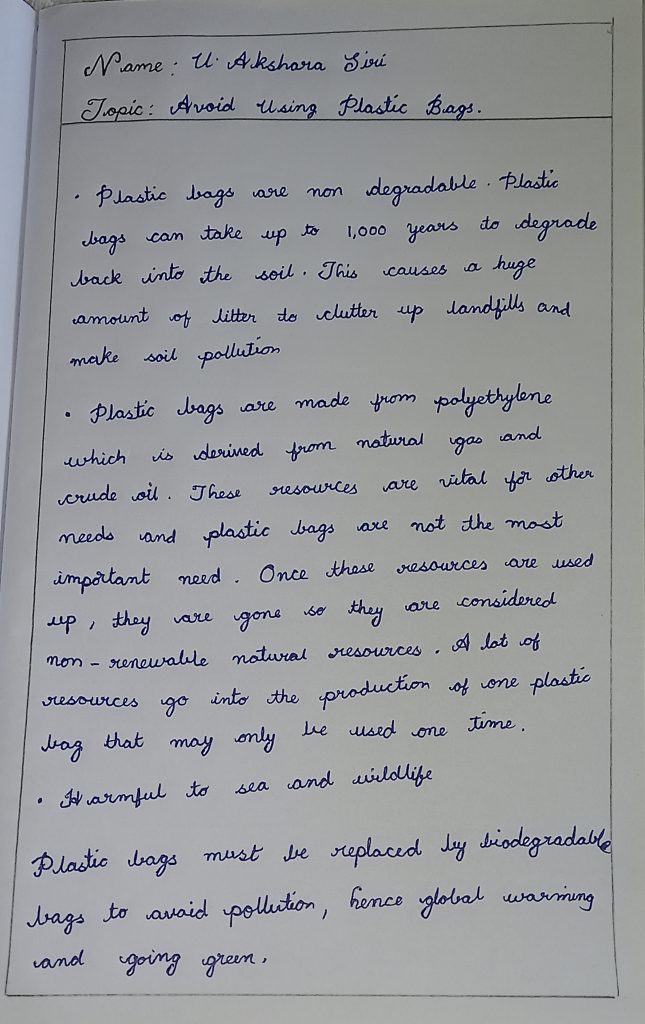 Name: U. Akshara Siri
Topic: Avoid Using Plastic Bags.
• Plastic bags are non degradable. Plastic
bags can take up to 1,000 years to degrade
back into the soil. This causes a huge
amount of litter to clutter up landfills and
make soil pollution
• Plastic bags are made from polyethylene
which is derived from natural gas and
crude oil. These resources are vital for other
needs and plastic bags are not the most
important need. Once these resources are used
up, they are gone so they are considered
non-renewable natural resources. A lot of
resources go into the production of one plastic
bag that may only be used one time.
• Harmful to sea and wildlife
Plastic bags must be replaced by biodegradable
bags to avoid pollution, hence global warming
and going green.